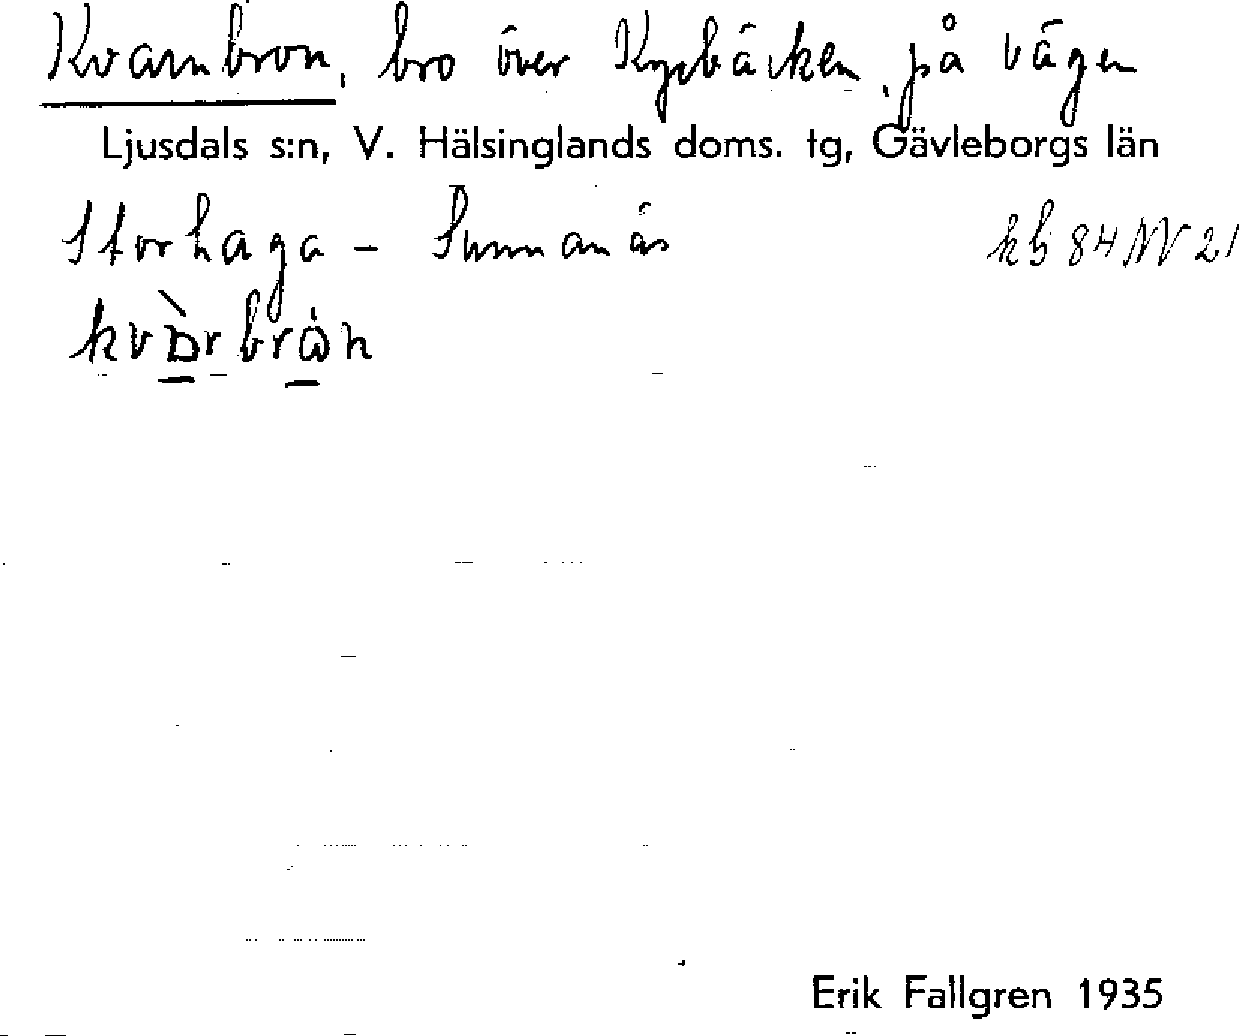 Kvarnbron, bro över Kyrbäcken, på vägen
Ljusdals s:n, V. Hälsinglands doms. tg, Gävleborgs län
Storhaga - Sunnanås kb 84 NV 21
Erik Fallgren 1935